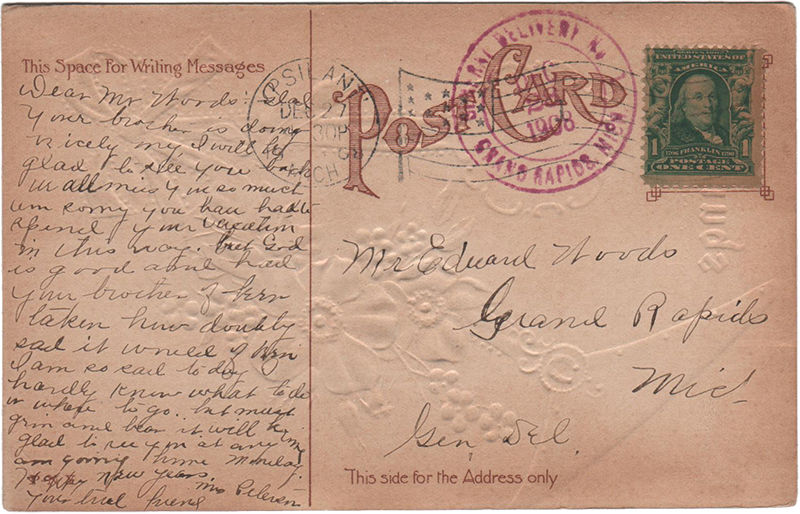 This Space for Writing Messages
Dear Mr Woods: Glad
Your brother is doing
nicely my I will be
glad to see you back
in all miss you so much
um sorry you hau had to
spend your vacation
in this way. but God
is good and had
your brother of bern
taken how doubly
sad it would of ben
I am so sad to day
hardly know what to do
or where to go. but must
grin and bear it will be
glad to see you at any
am going home Monday.
Happy New Years.
Mrs Peterson
Your true friend
YPSILANTI
DEC 27
30P
MICH
POST CARD
GENERAL DELIVERY No. 1
1908
GRAND RAPIDS, MICH.
UNITED STATES OF
AMERICA
1 1
1706 FRANKLIN 1790
POSTAGE
ONE CENT
Mr Eduard Woods
Grand Rapids
Mich
Gen Del.
This side for the Address only